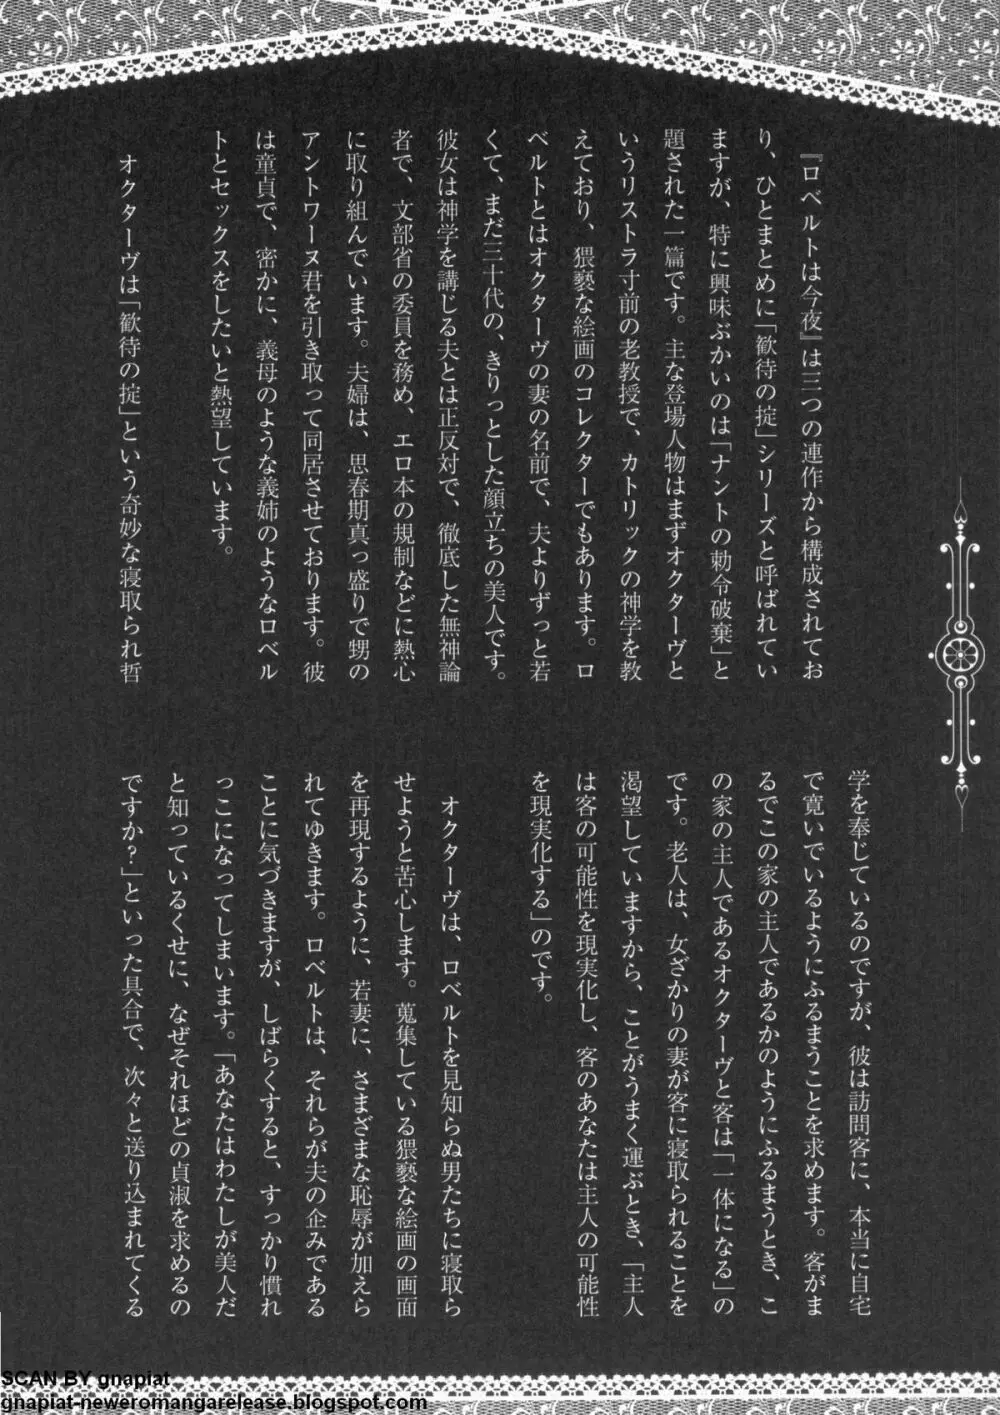 『ロベルトは今夜』は三つの連作から構成されてお
り、ひとまとめに「歓待の掟」シリーズと呼ばれてい
ますが、特に興味ぶかいのは「ナントの勅令破棄」と
題された一篇です。主な登場人物はまずオクターヴと
いうリストラ寸前の老教授で、カトリックの神学を教
えており、猥褻な絵画のコレクターでもあります。ロ
ベルトとはオクターヴの妻の名前で、夫よりずっと若
くて、まだ三十代の、きりっとした顔立ちの美人です。
彼女は神学を講じる夫とは正反対で、徹底した無神論
者で、文部省の委員を務め、エロ本の規制などに熱心
に取り組んでいます。夫婦は、思春期真っ盛りで甥の
アントワーヌ君を引き取って同居させております。彼
は童貞で、密かに、義母のような義姉のようなロベル
トとセックスをしたいと熱望しています。
オクターヴは「歓待の掟」という奇妙な寝取られ哲
学を奉じているのですが、彼は訪問客に、本当に自宅
で寛いでいるようにふるまうことを求めます。客がま
るでこの家の主人であるかのようにふるまうとき、こ
の家の主人であるオクターヴと客は「一体になる」の
です。老人は、女ざかりの妻が客に寝取られることを
渇望していますから、ことがうまく運ぶとき、「主人
は客の可能性を現実化し、客のあなたは主人の可能性
を現実化する」のです。
オクターヴは、ロベルトを見知らぬ男たちに寝取ら
せようと苦心します。蒐集している猥褻な絵画の画面
を再現するように、若妻に、さまざまな恥辱が加えら
れてゆきます。ロベルトは、それらが夫の企みである
ことに気づきますが、しばらくすると、すっかり慣れ
っこになってしまいます。「あなたはわたしが美人だ
と知っているくせに、なぜそれほどの貞淑を求めるの
ですか？」といった具合で、次々と送り込まれてくる
SCAN BY gnapiat
gnapiat-neweromangarelease.blogspot.com